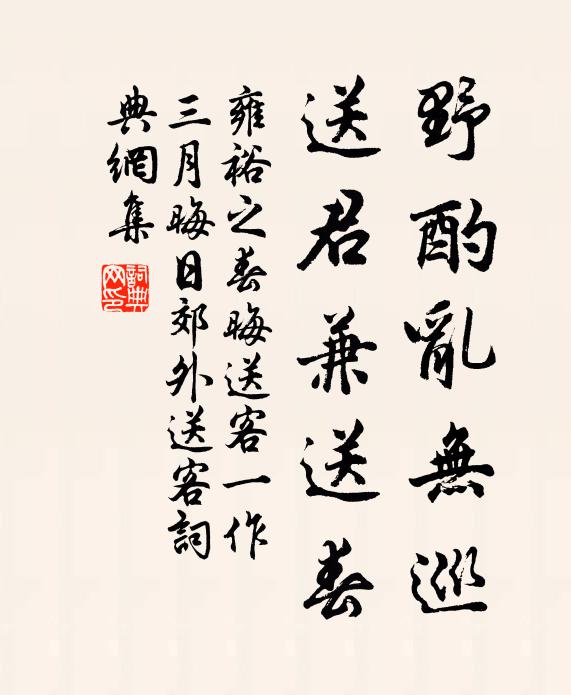 野酌亂無巡
送君兼送春
雍裕之春晦送客一作
三月晦日郊外送客詞
典網集
詞典網印